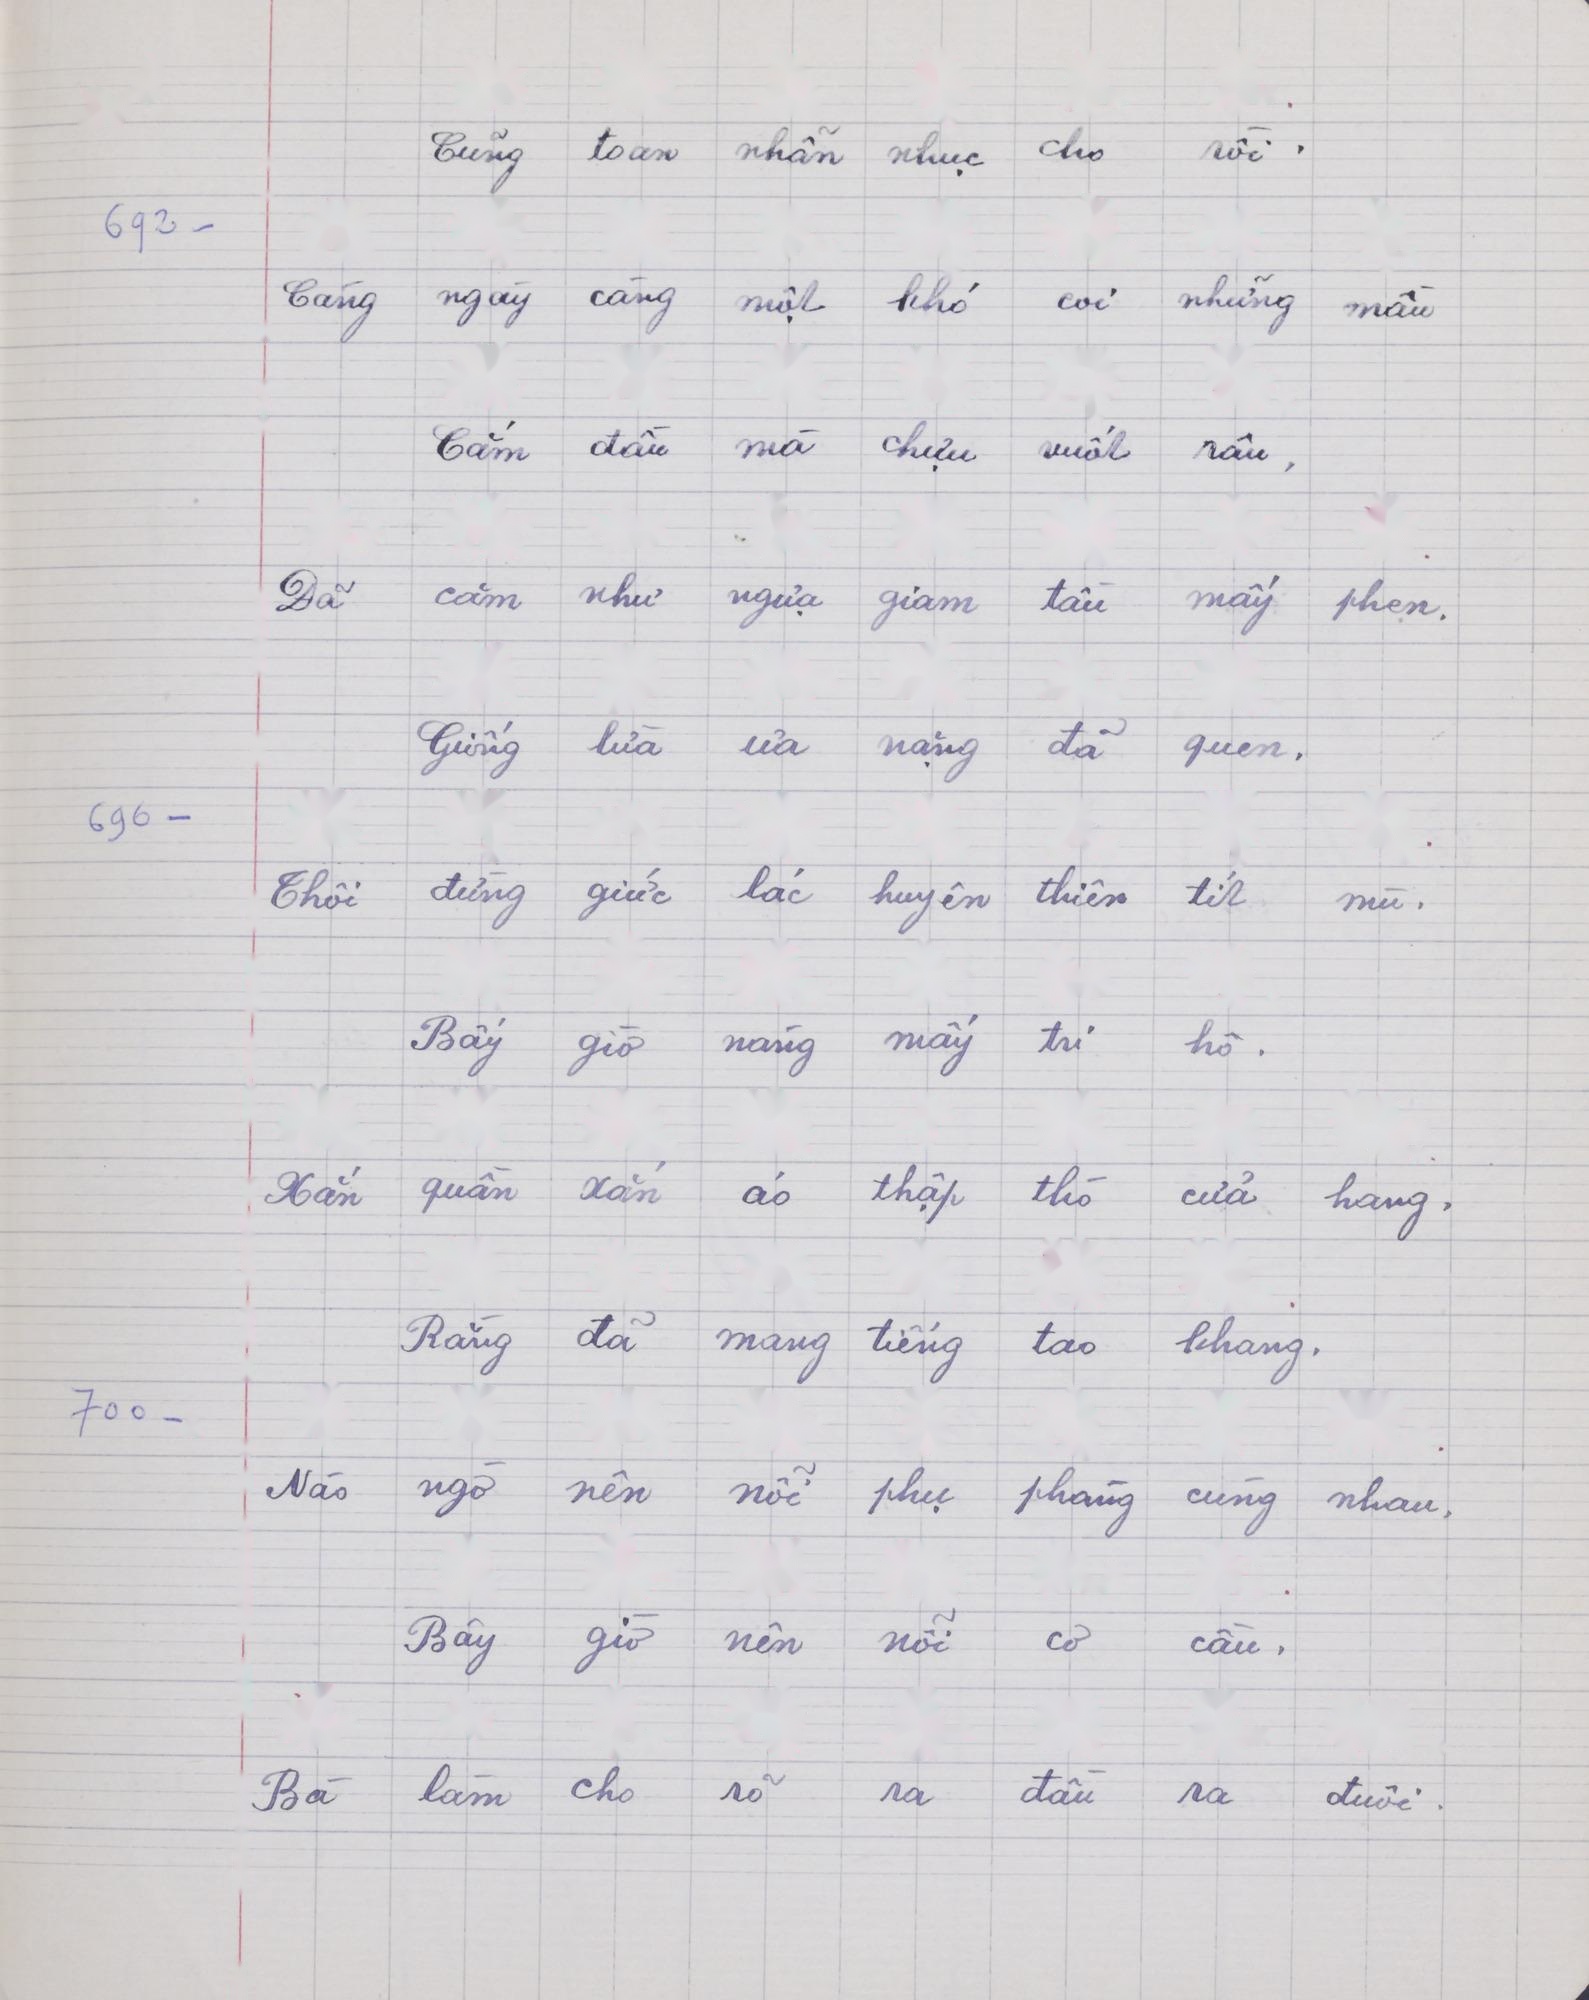 Cũng toan nhẫn nhục cho rồi.
692-
Càng ngày càng một khó coi những mầu
Cắm đầu mà chựu vuốt râu,
Dã cầm như ngựa giam tầu mấy phen.
Giống lừa ưa nặng đã quen.
696-
Thôi đừng giức lác huyên thiên tít mù.
Bấy giờ nàng mấy tri hô.
Xắn quần xắn áo thập thò cửa hang.
Rằng đã mang tiếng tao khang.
700-
Nào ngờ nên nỗi phụ phàng cùng nhau.
Bây giờ nên nỗi cơ cầu.
Bà làm cho rõ ra đầu ra đuôi.